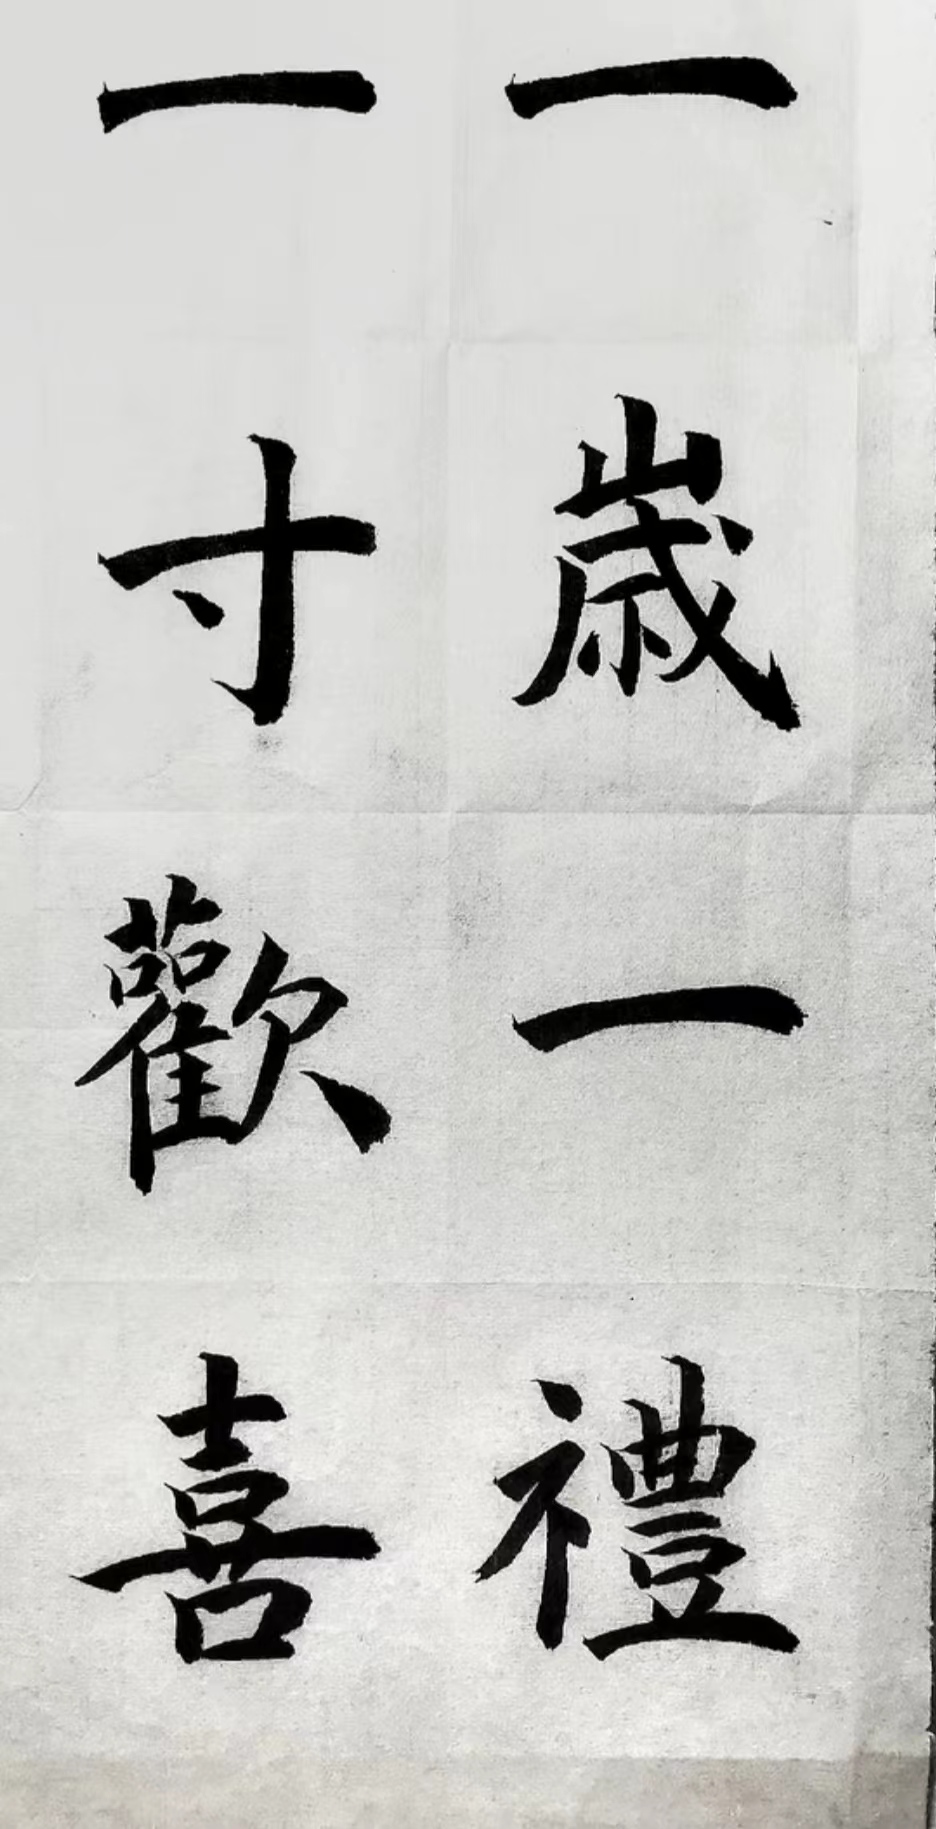 一歲一禮
一寸歡喜